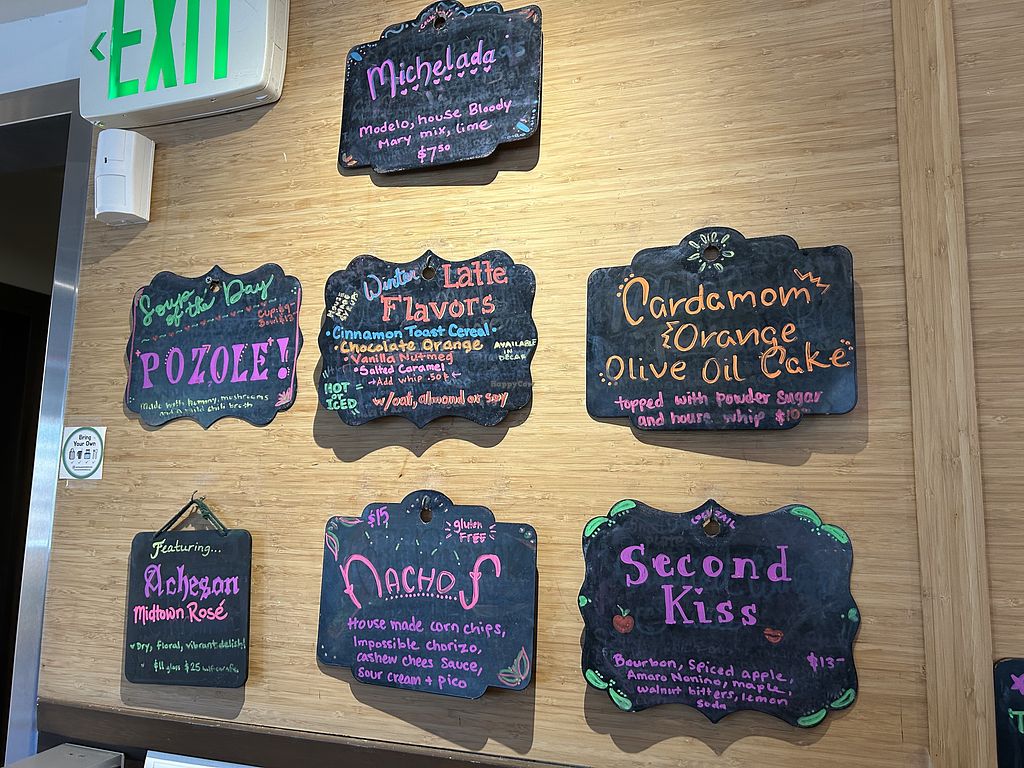 EXIT
Cocktail
Michelada
Modelo, house Bloody
Mary mix, lime
$7.50
Soup
of the Day
Cup: $9
Bowl: $13
POZOLE!
Made with hominy, mushrooms
Winter Latte
Flavors
• Cinnamon Toast Cereal •
• Chocolate Orange
• Vanilla Nutmeg
• Salted Caramel
→ Add whip .50¢ ←
AVAILABLE
IN
DECAF
HOT
or
ICED
w/oat, almond or soy
HappyCow
Cardamom
& Orange
Olive Oil Cake
topped with powder sugar
and house whip $10
Bring
Your Own
Featuring...
Acheson
Midtown Rosé
♥ Dry, floral, vibrant, delish!
$11 glass $25 half-carafe
$15
gluten
FREE
NACHOS
House made corn chips,
Impossible chorizo,
cashew chees sauce,
sour cream + pico
COCKTAIL
Second
Kiss
$13
Bourbon, Spiced apple,
Amaro Nonino, maple,
walnut bitters, lemon
soda